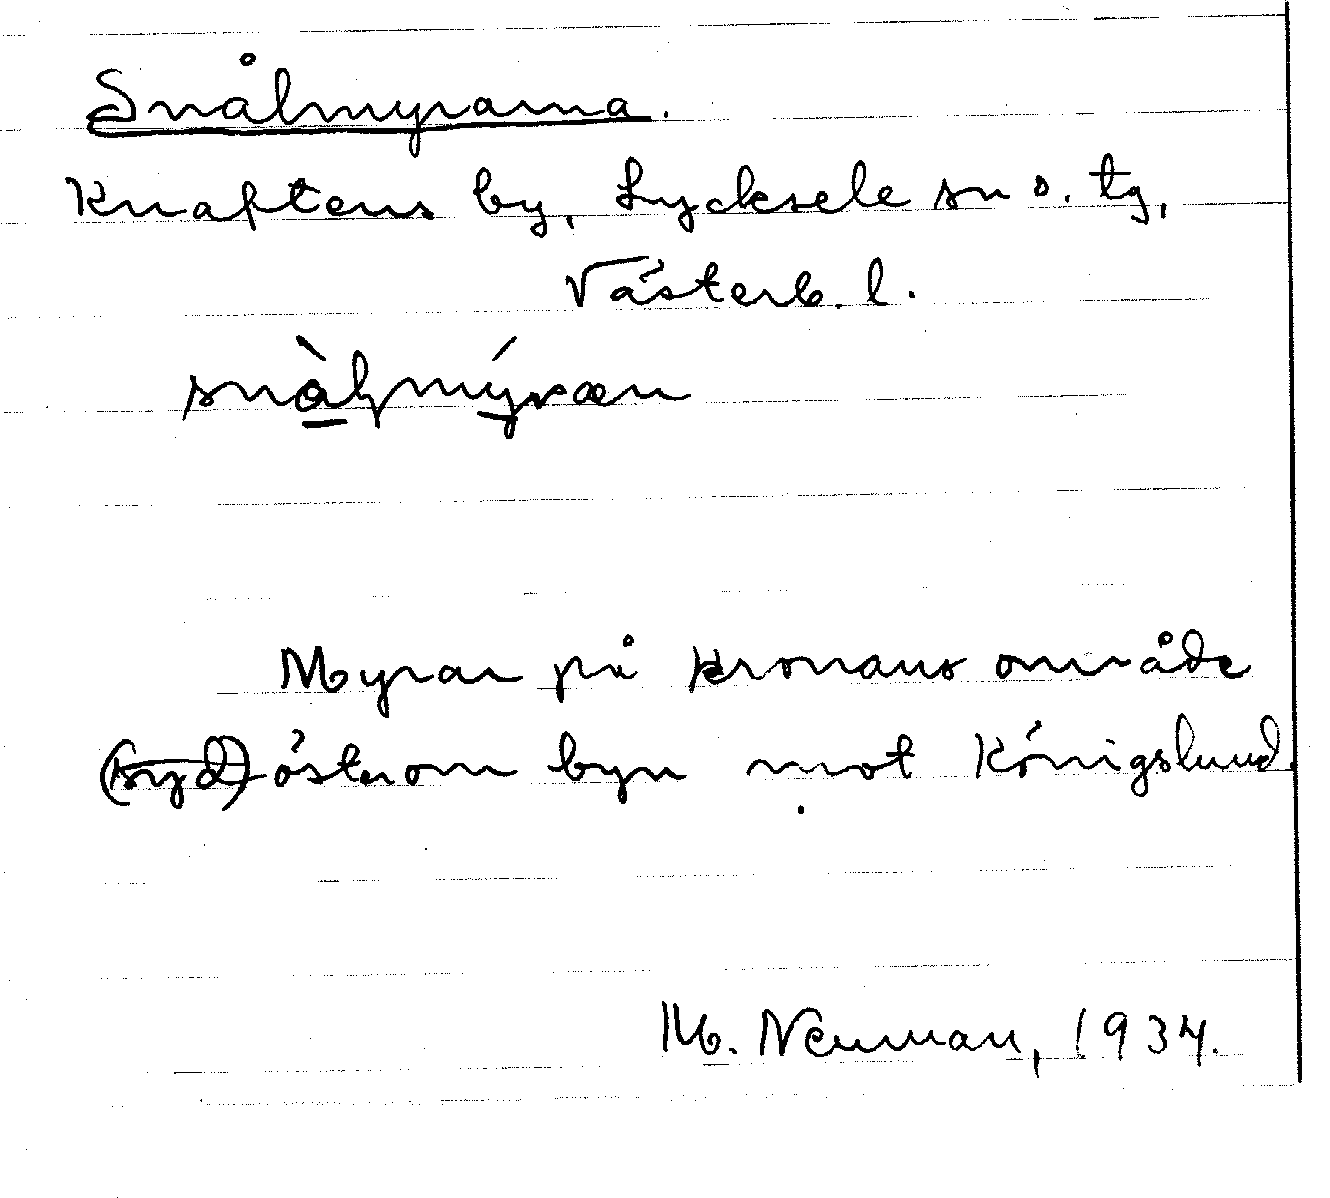 Snålmyrarna.
Knaftens by, Lycksele sn o. tg,
Västerb. l.
snàḷmýræn
Myrar på kronans område
(syd)öster om byn mot Königslund.
M. Neuman, 1934.